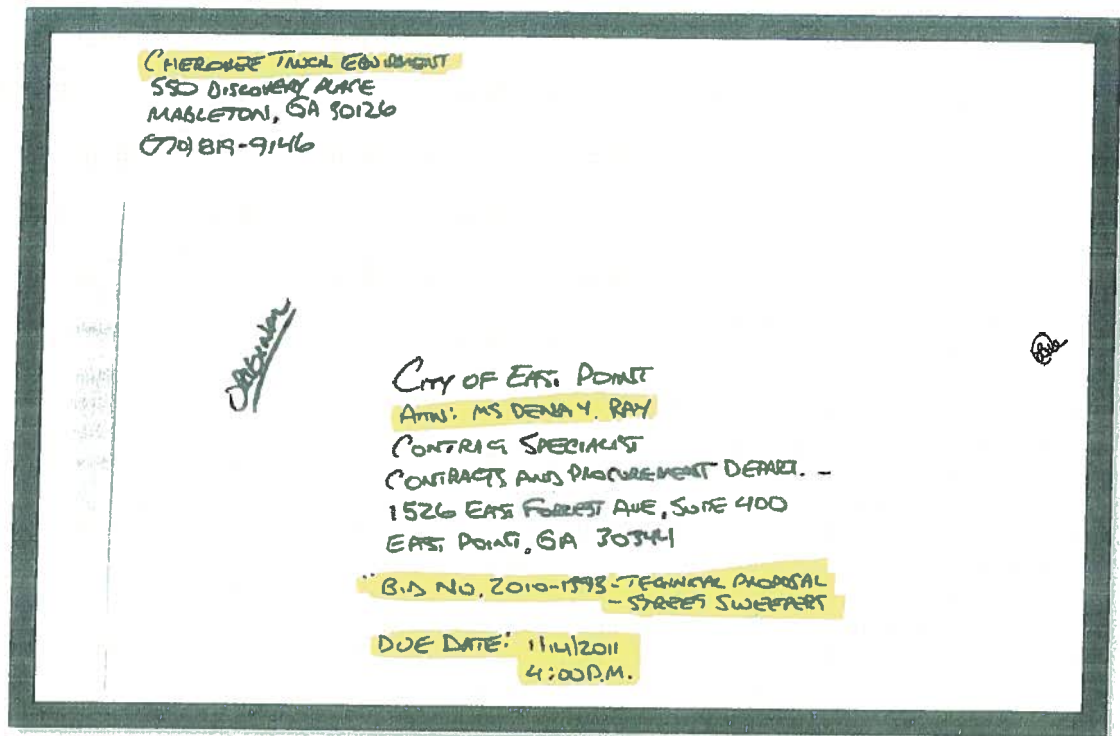 CHEROKEE TRUCK EQUIPMENT
550 DISCOVERY PLACE
MABLETON, GA 30126
(770) 819-9146
CITY OF EAST POINT
ATTN: MS DENA Y. RAY
CONTRACT SPECIALIST
CONTRACTS AND PROCUREMENT DEPART. -
1526 EAST FORREST AVE, SUITE 400
EAST POINT, GA 30344
BID NO. 2010-1393 - TECHNICAL PROPOSAL
- STREET SWEEPERS
DUE DATE: 1/14/2011
4:00 P.M.